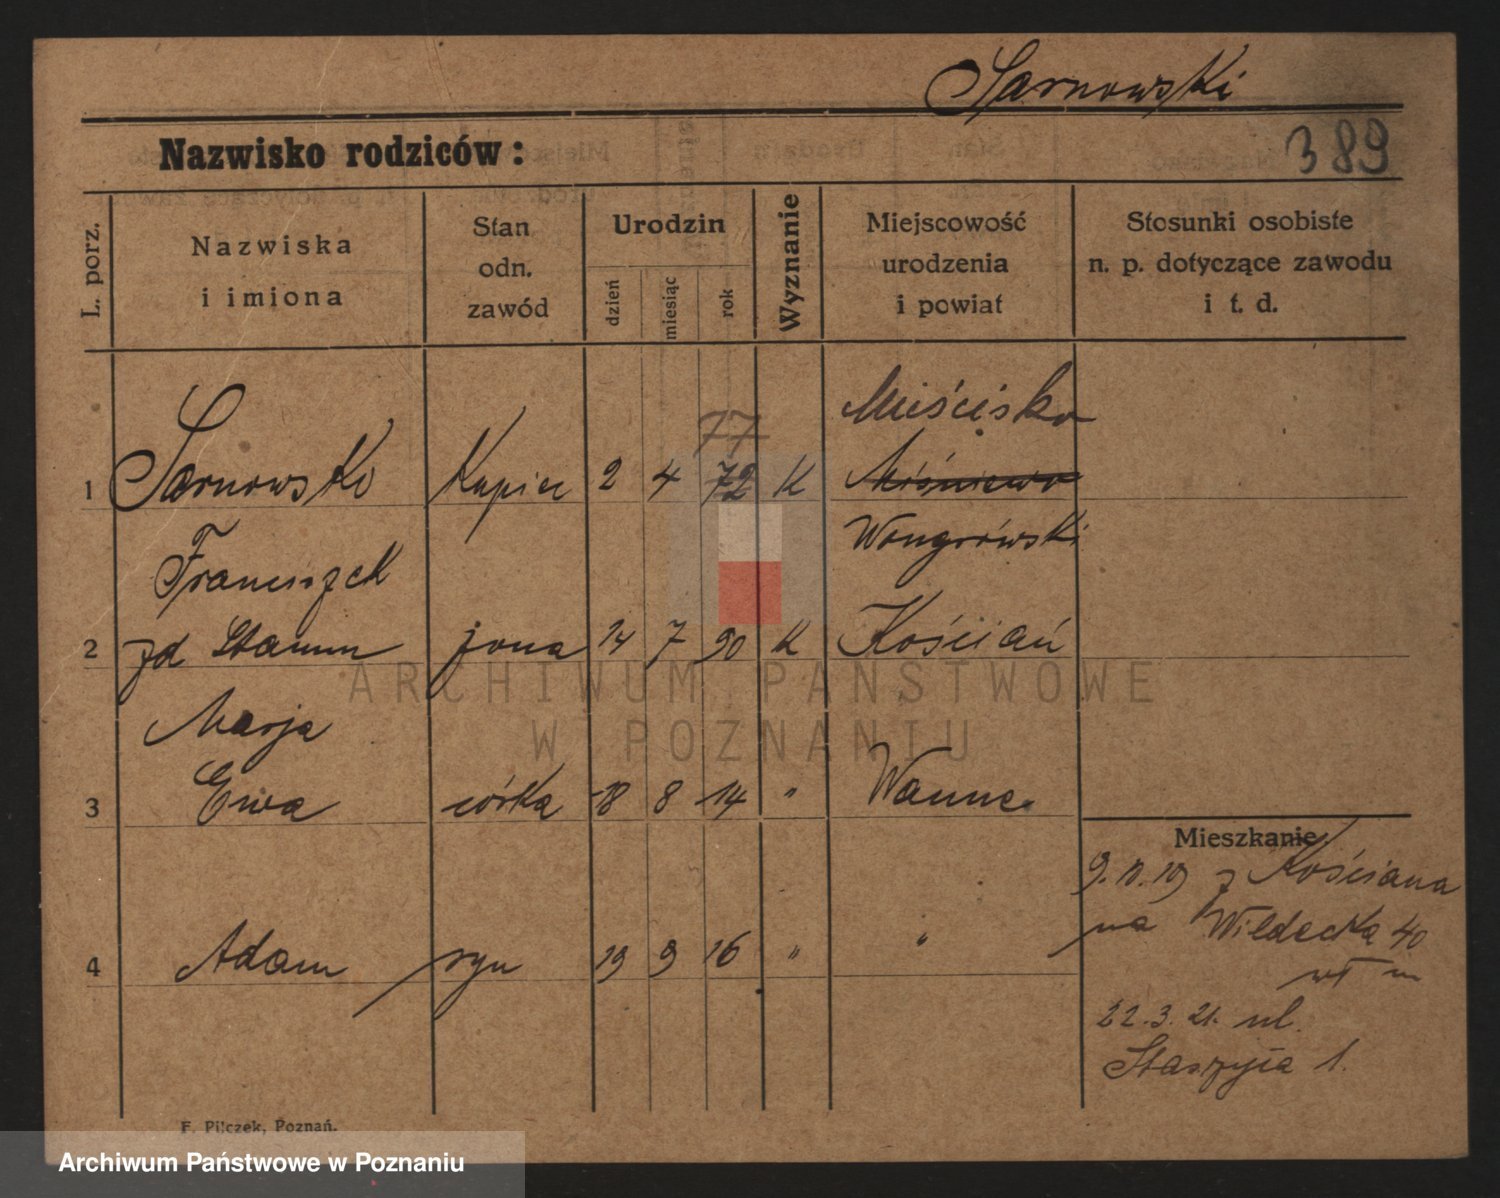 Sarnowski
Nazwisko rodziców:
389
L. porz.
Nazwiska
i imiona
Stan
odn.
zawód
Urodzin
dzień
miesiąc
rok
Wyznanie
Miejscowość
urodzenia
i powiat
Stosunki osobiste
n. p. dotyczące zawodu
i t. d.
77
Mieścisko
1 Sarnowski Kupiec 2 4 72 K Miśniewo
Franciszek Wongrówski
2 zd Stamm żona 14 7 90 K Kościań
Marja
3 Ewa córka 18 8 14 " Wanne
Mieszkanie
9. 10. 19 z Kościana
na Wildecka 40
4 Adam syn 19 9 16 " "
22. 3. 21. ul.
Staszyca 1.
F. Pilczek, Poznań.
ARCHIWUM PAŃSTWOWE
W POZNANIU
Archiwum Państwowe w Poznaniu